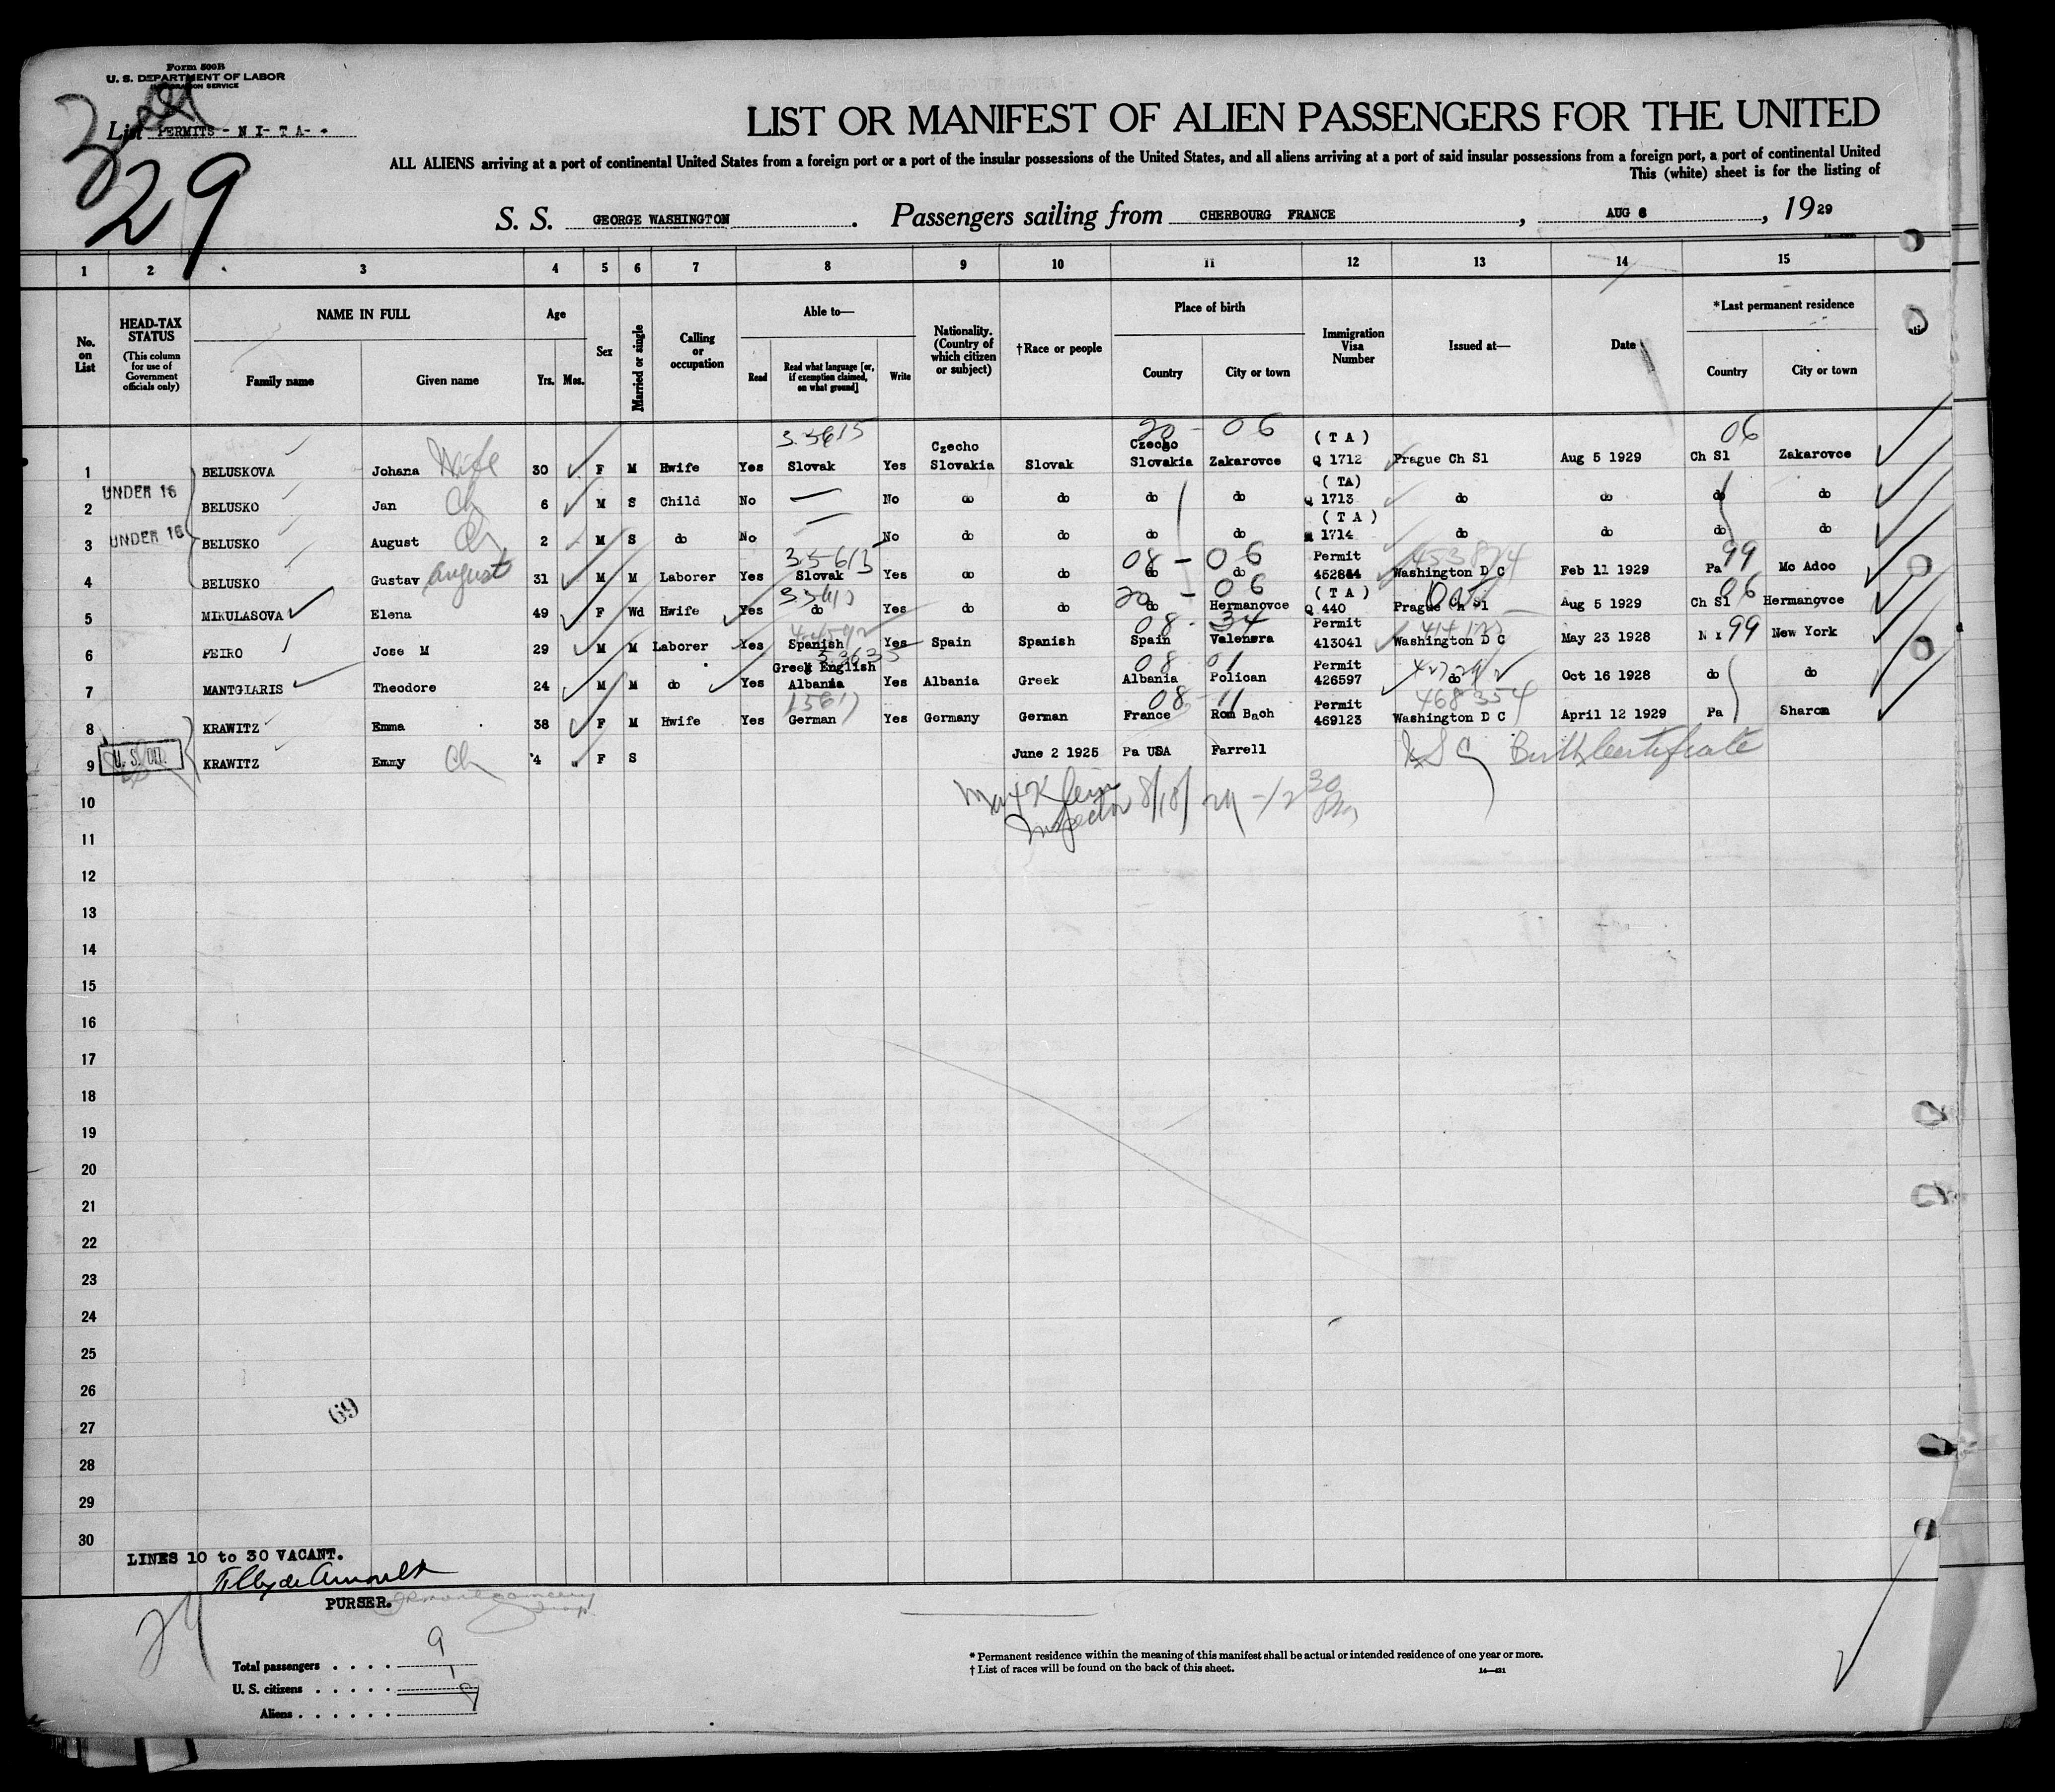 Form 500B
U. S. DEPARTMENT OF LABOR
IMMIGRATION SERVICE
3
List PERMITS - N I - T A -
29
LIST OR MANIFEST OF ALIEN PASSENGERS FOR THE UNITED
ALL ALIENS arriving at a port of continental United States from a foreign port or a port of the insular possessions of the United States, and all aliens arriving at a port of said insular possessions from a foreign port, a port of continental United
This (white) sheet is for the listing of
S. S. GEORGE WASHINGTON. Passengers sailing from CHERBOURG FRANCE, AUG 6, 1929
1 2 3 4 5 6 7 8 9 10 11 12 13 14 15
No. on List
HEAD-TAX STATUS (This column for use of Government officials only)
NAME IN FULL Family name Given name
Age Yrs. Mos.
Sex
Married or single
Calling or occupation
Able to— Read Read what language [or, if exemption claimed, on what ground] Write
Nationality. (Country of which citizen or subject)
†Race or people
Place of birth Country City or town
Immigration Visa Number
Issued at—
Date
*Last permanent residence Country City or town
33615 20 - 06 06
Czecho Czecho ( T A )
1 BELUSKOVA Johana Wife 30 F M Hwife Yes Slovak Yes Slovakia Slovak Slovakia Zakarovce Q 1712 Prague Ch Sl Aug 5 1929 Ch Sl Zakarovce
UNDER 16 ( TA)
2 BELUSKO Jan Ch 6 M S Child No — No do do do do Q 1713 do do do do
UNDER 16 ( T A )
3 BELUSKO August Ch 2 M S do No — No do do do do 1714 do do do do
35613 08 - 06 Permit 99
4 BELUSKO Gustav August 31 M M Laborer Yes Slovak Yes do do do do Washington D C Feb 11 1929 Pa Mc Adoo
20 - 06 ( T A ) 06
5 MIKULASOVA Elena 49 F Wd Hwife Yes do Yes do do do Hermanovce Q 440 Prague Ch Sl Aug 5 1929 Ch Sl Hermanovce
08 - 34 Permit 99
6 PEIRO Jose M 29 M M Laborer Yes Spanish Yes Spain Spanish Spain 413041 Washington D C May 23 1928 N Y New York
Greek English 08 01 Permit
7 MANTGIARIS Theodore 24 M M do Yes Albania Yes Albania Greek Albania Polican 426597 do Oct 16 1928 do do
08 - 11 Permit 468354
8 KRAWITZ Emma 38 F M Hwife Yes German Yes Germany German France Rom Bach 469123 Washington D C April 12 1929 Pa Sharon
9 U.S. KRAWITZ Emmy Ch 4 F S June 2 1925 Pa USA Farrell U S C Birth Certificate
10 Max Klein
Inspector 8/18/29 - 12 30 Pm
11
12
13
14
15
16
17
18
19
20
21
22
23
24
25
26
69
27
28
29
30
LINES 10 to 30 VACANT.
PURSER.
29
Total passengers . . . . 9
U. S. citizens . . . . . 1
Aliens . . . . . .
* Permanent residence within the meaning of this manifest shall be actual or intended residence of one year or more.
† List of races will be found on the back of this sheet.
14—431